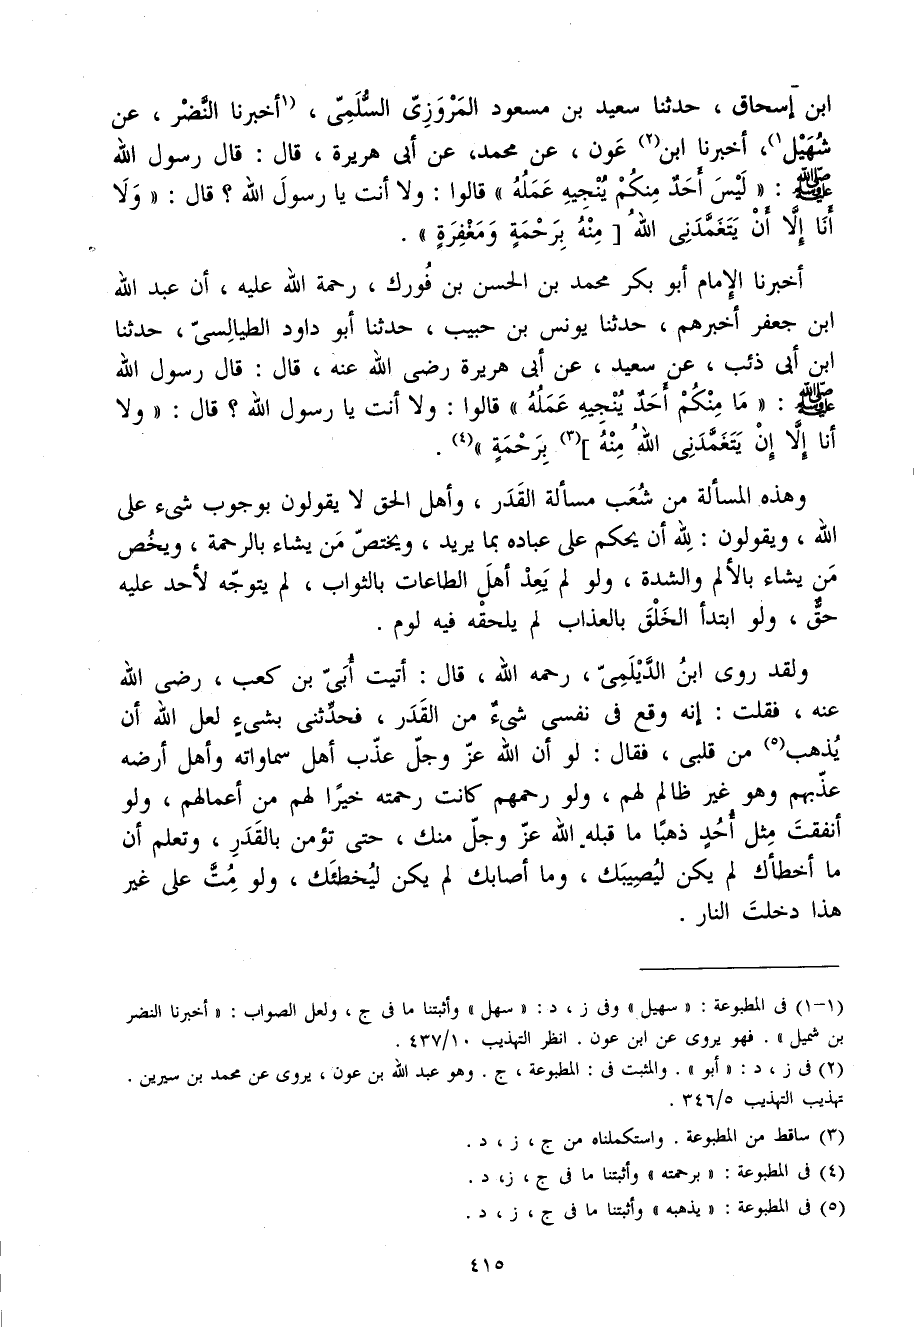 ابن إسحاق ، حدثنا سعيد بن مسعود المَرْوَزِىّ السُّلَمِىّ ، (١أخبرنا النَّضْر ، عن
شُهَيْل١)، أخبرنا ابن(٢) عَون ، عن محمد، عن أبى هريرة ، قال : قال رسول الله
ﷺ : « لَيْسَ أَحَدٌ مِنكُمْ يُنْجِيهِ عَمَلُهُ » قالوا : ولا أنت يا رسولَ الله ؟ قال : « وَلَا
أَنَا إِلَّا أَنْ يَتَغَمَّدَنِى اللهُ [ مِنْهُ بِرَحْمَةٍ وَمَغْفِرَةٍ » .
أخبرنا الإِمام أبو بكر محمد بن الحسن بن فُورك ، رحمة الله عليه ، أن عبد الله
ابن جعفر أخبرهم ، حدثنا يونس بن حبيب ، حدثنا أبو داود الطيالسىّ ، حدثنا
ابن أبى ذئب ، عن سعيد ، عن أبى هريرة رضى الله عنه ، قال : قال رسول الله
ﷺ : « مَا مِنْكُمْ أَحَدٌ يُنْجِيهِ عَمَلُهُ » قالوا : ولا أنت يا رسول الله ؟ قال : « ولا
أنا إِلَّا إِنْ يَتَغَمَّدَنِى اللهُ مِنْهُ ](٣) بِرَحْمَةٍ »(٤) .
وهذه المسألة من شُعَب مسألة القَدَر ، وأهل الحق لا يقولون بوجوب شىء على
الله ، ويقولون : لله أن يحكم على عباده بما يريد ، ويختصّ مَن يشاء بالرحمة ، ويخُص
مَن يشاء بالألم والشدة ، ولو لم يَعِدْ أهلَ الطاعات بالثواب ، لم يتوجّه لأحد عليه
حقٌّ ، ولو ابتدأ الخَلْقَ بالعذاب لم يلحقْه فيه لوم .
ولقد روى ابنُ الدَّيْلَمِىّ ، رحمه الله ، قال : أتيت أُبَىّ بن كعب ، رضى الله
عنه ، فقلت : إنه وقع فى نفسى شىءٌ من القَدَر ، فحدِّثنى بشىءٍ لعل الله أن
يُذهب(٥) من قلبى ، فقال : لو أن الله عزّ وجلّ عذّب أهل سماواته وأهل أرضه
عذّبهم وهو غير ظالم لهم ، ولو رحمهم كانت رحمته خيرًا لهم من أعمالهم ، ولو
أنفقتَ مِثل أُحُدٍ ذهبًا ما قبله الله عزّ وجلّ منك ، حتى تؤمن بالقَدَرِ ، وتعلم أن
ما أخطأك لم يكن ليُصِيبَك ، وما أصابك لم يكن ليُخطئَك ، ولو مِتَّ على غير
هذا دخلتَ النار .
(١-١) فى المطبوعة : « سهيل » وفى ز ، د : « سهل » وأثبتنا ما فى ج ، ولعل الصواب : « أخبرنا النضر
بن شميل » . فهو يروى عن ابن عون . انظر التهذيب ٤٣٧/١٠ .
(٢) فى ز ، د : « أبو » . والمثبت فى : المطبوعة ، ج . وهو عبد الله بن عون ، يروى عن محمد بن سيرين .
تهذيب التهذيب ٣٤٦/٥ .
(٣) ساقط من المطبوعة . واستكملناه من ج ، ز ، د .
(٤) فى المطبوعة : « برحمته » وأثبتنا ما فى ج ، ز، د .
(٥) فى المطبوعة : « يذهبه » وأثبتنا ما فى ج ، ز ، د .
٤١٥